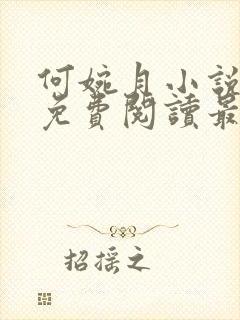 何婉月小說
免費閱讀最
招摇之